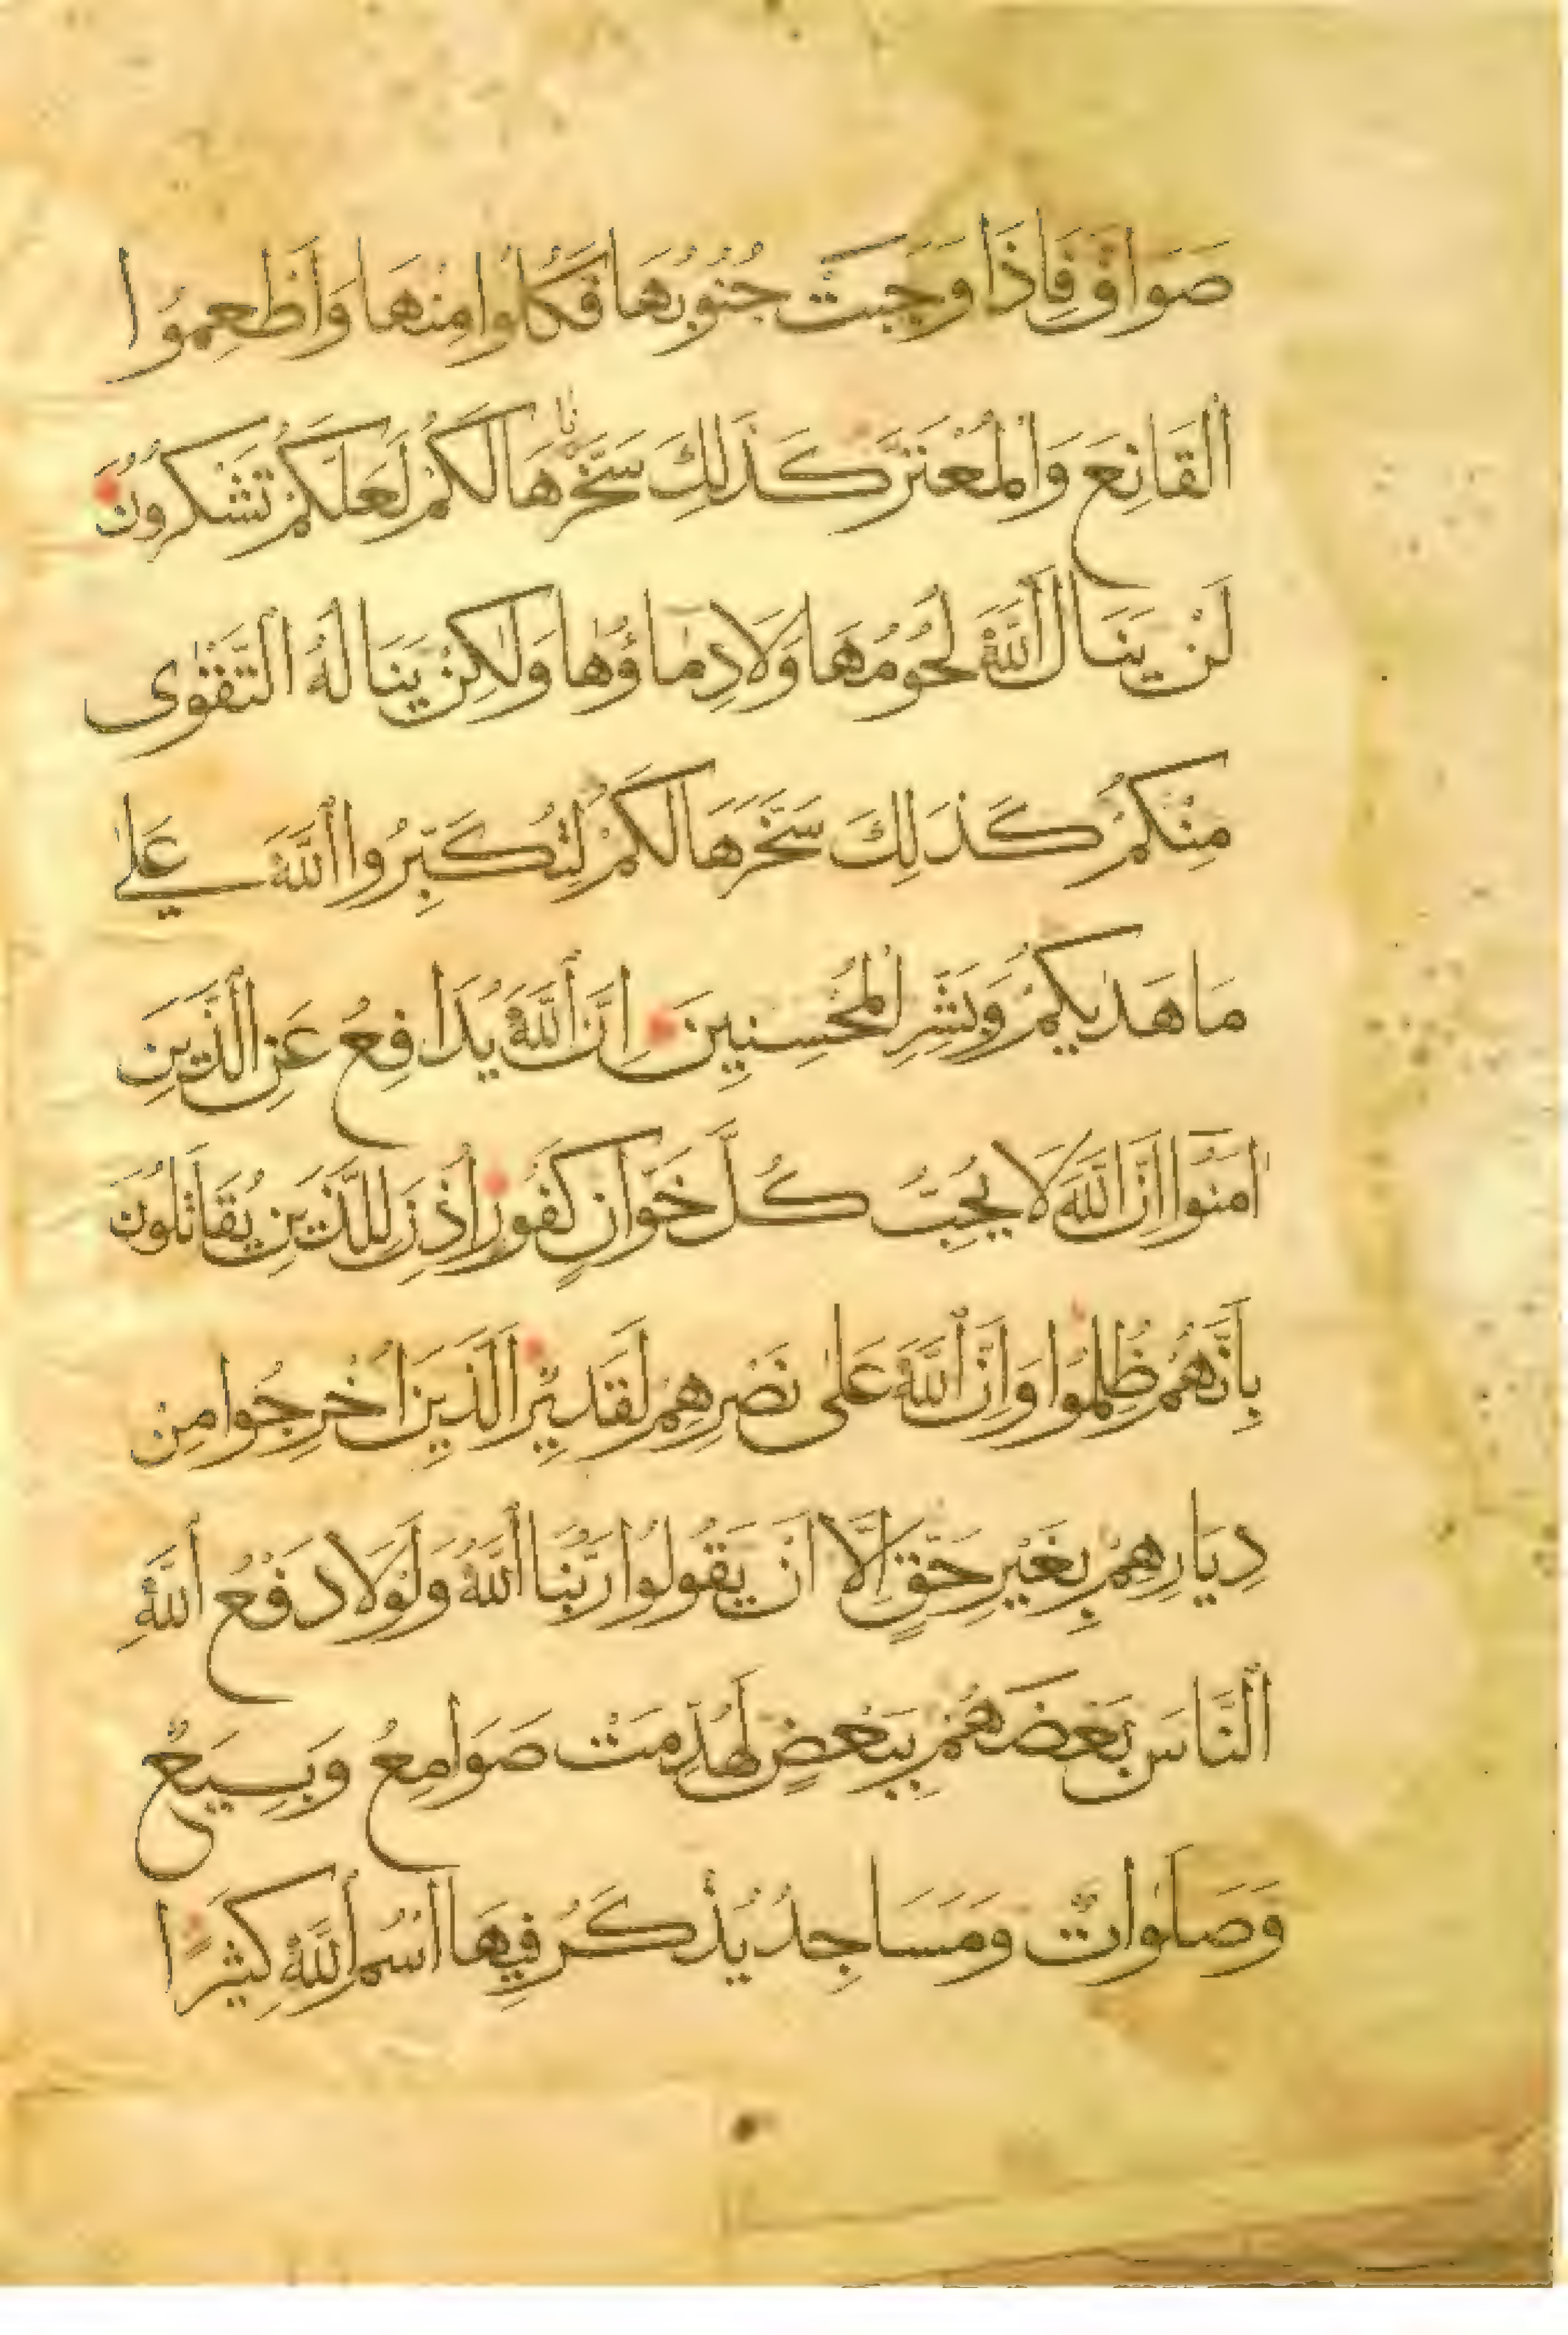 صَوَافَّ فَاِذَا وَجَبَتْ جُنُوبُهَا فَكُلُوا مِنْهَا وَاَطْعِمُوا
الْقَانِعَ وَالْمُعْتَرَّ كَذَلِكَ سَخَّرْنَاهَا لَكُمْ لَعَلَّكُمْ تَشْكُرُونَ
لَنْ يَنَالَ اللّٰهَ لُحُومُهَا وَلَا دِمَاؤُهَا وَلٰكِنْ يَنَالُهُ التَّقْوٰى
مِنْكُمْ كَذَلِكَ سَخَّرَهَا لَكُمْ لِتُكَبِّرُوا اللّٰهَ عَلٰى
مَا هَدٰيكُمْ وَبَشِّرِ الْمُحْسِنِينَ اِنَّ اللّٰهَ يُدَافِعُ عَنِ الَّذِينَ
اٰمَنُوا اِنَّ اللّٰهَ لَا يُحِبُّ كُلَّ خَوَّانٍ كَفُورٍ اُذِنَ لِلَّذِينَ يُقَاتَلُونَ
بِاَنَّهُمْ ظُلِمُوا وَاِنَّ اللّٰهَ عَلٰى نَصْرِهِمْ لَقَدِيرٌ الَّذِينَ اُخْرِجُوا مِنْ
دِيَارِهِمْ بِغَيْرِ حَقٍّ اِلَّا اَنْ يَقُولُوا رَبُّنَا اللّٰهُ وَلَوْلَا دَفْعُ اللّٰهِ
النَّاسَ بَعْضَهُمْ بِبَعْضٍ لَهُدِّمَتْ صَوَامِعُ وَبِيَعٌ
وَصَلَوَاتٌ وَمَسَاجِدُ يُذْكَرُ فِيهَا اسْمُ اللّٰهِ كَثِيرًا